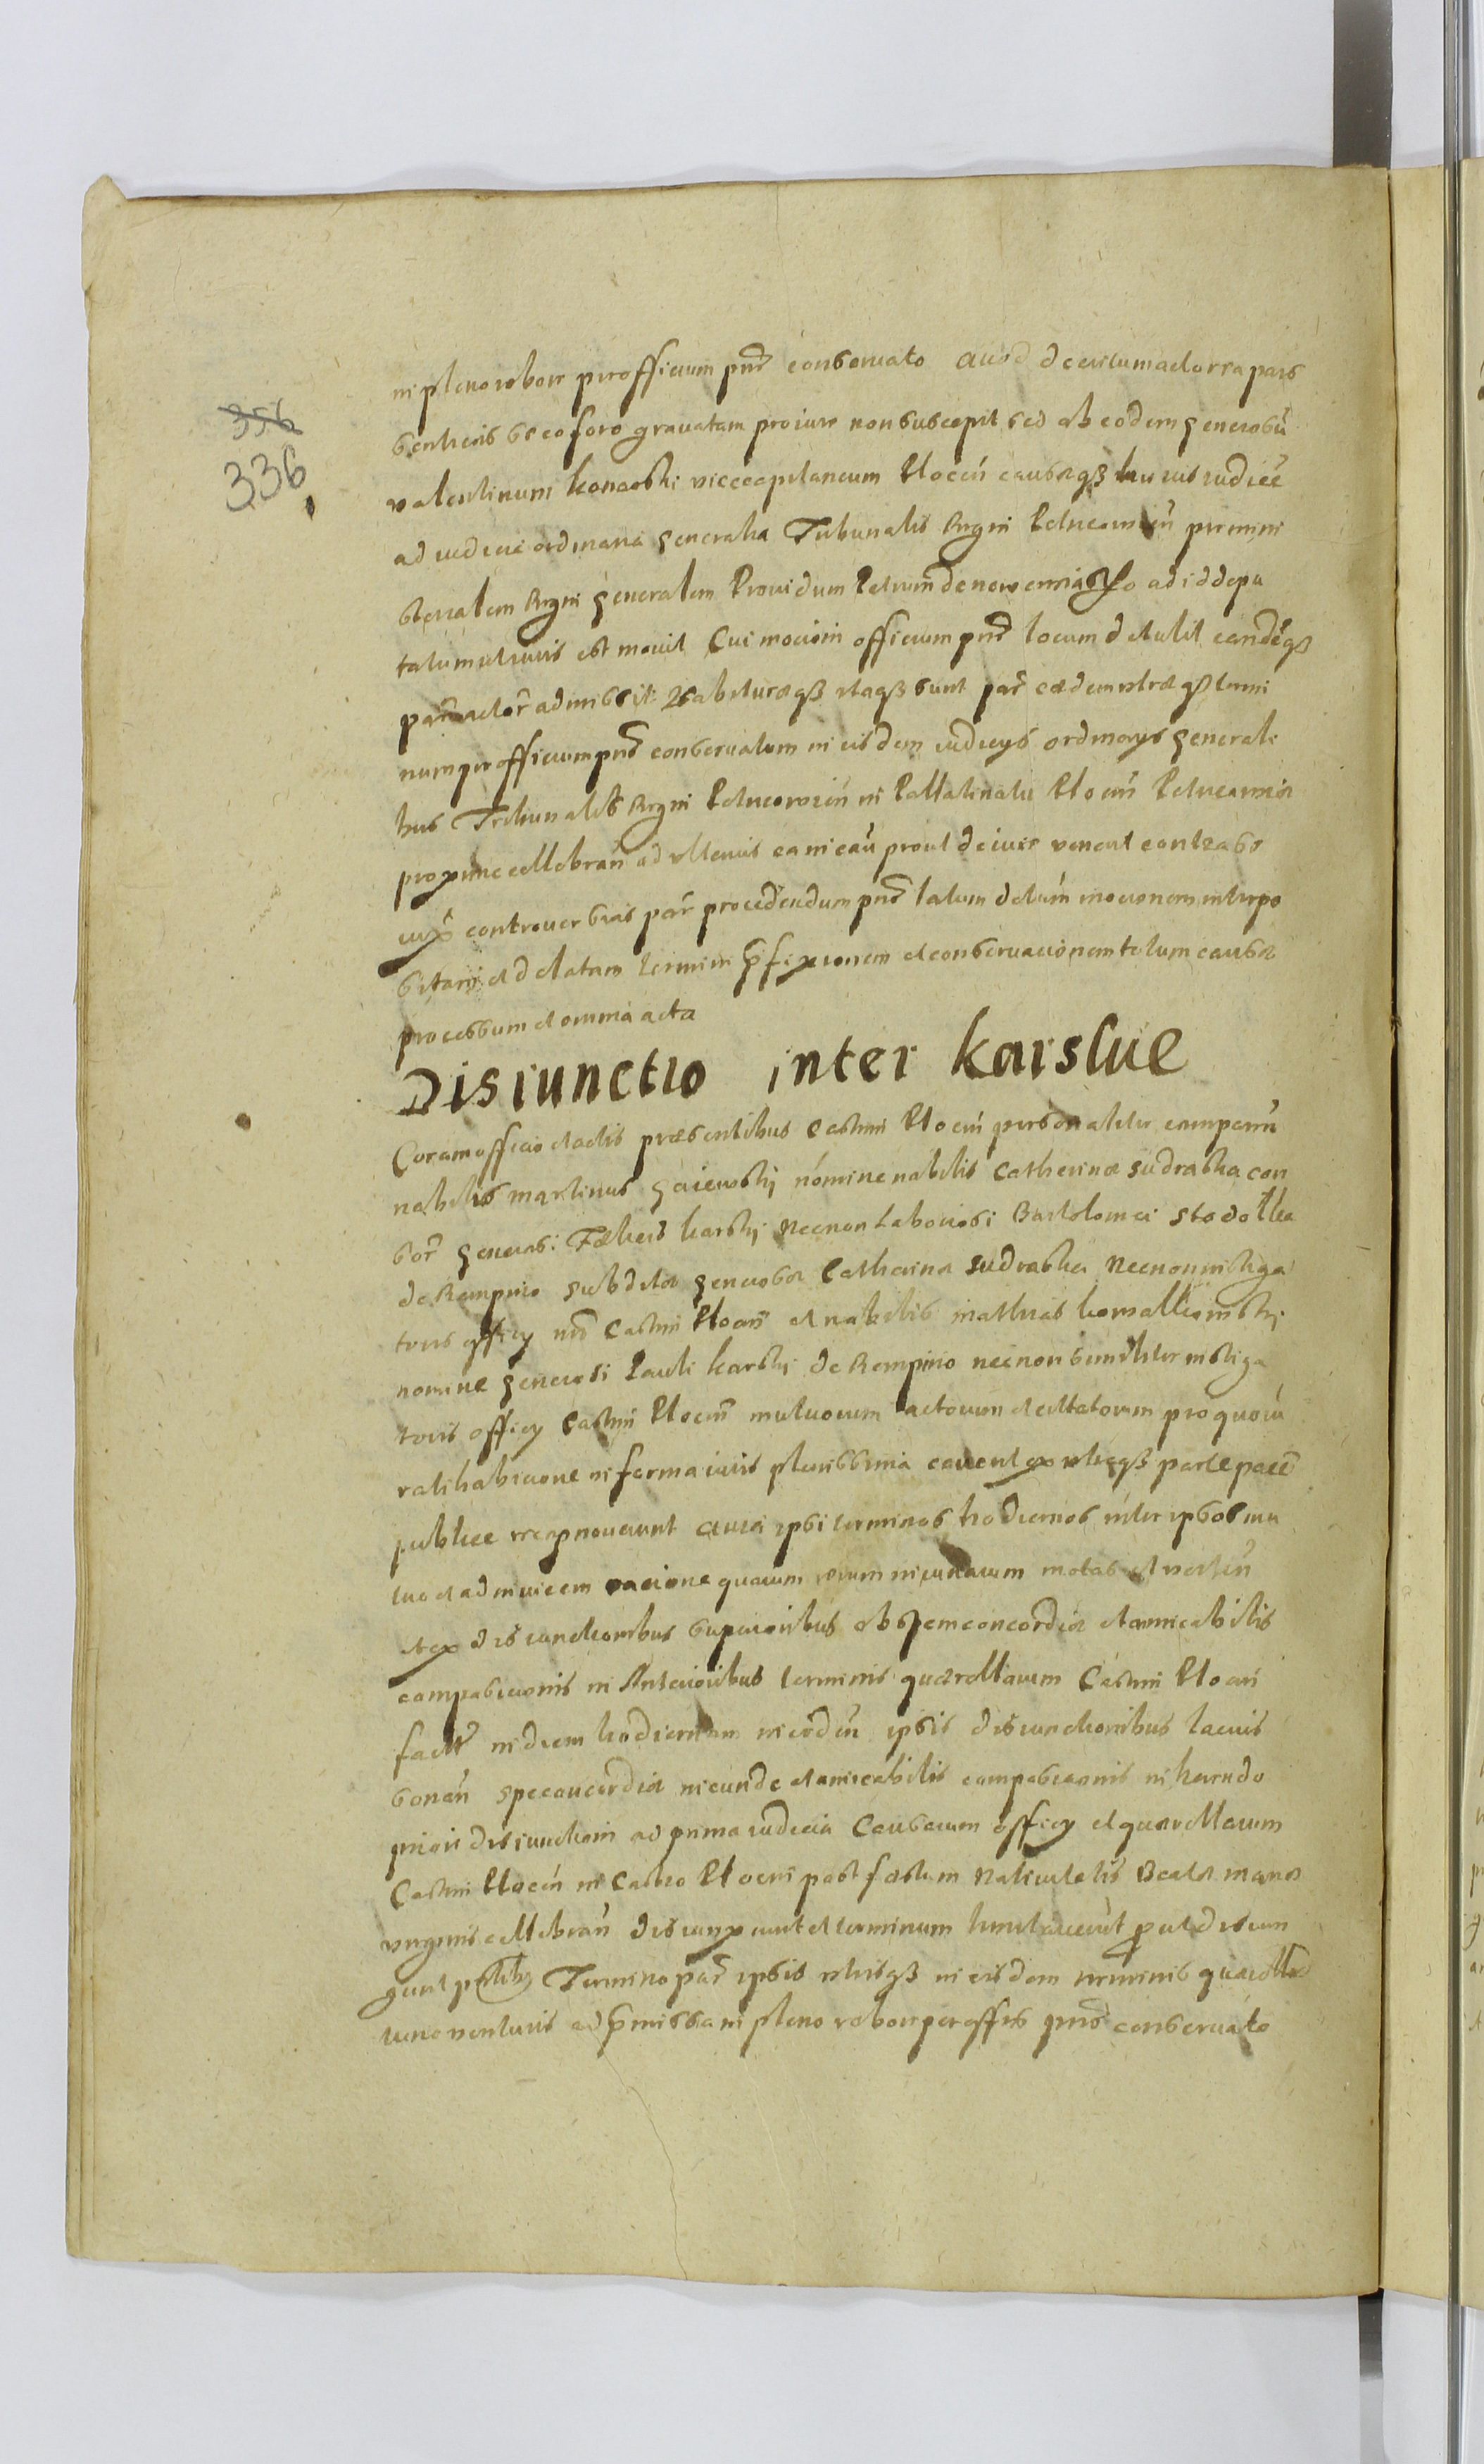 356
336
in pleno robore per officium pn̄s conservato Quod decretum actorea pars
sentiens se eo foro gravatam pro iure non suscepit sed ab eodem generosū
valentinum konarski vicecapitaneum Plocen̄ causæqȝ huius iudicē
ad iudicia ordinaria generalia Tribunalis Regni Petricovien̄ per mini
sterialem Regni generalem Providum Petrum de nowemiasto ad id depu
tatum ulterius est movit Cui motioni officium pn̄s locum detulit eandēqȝ
par̄ actor̄ admissit itaqȝ sunt par̄ eædem utræqȝ termi
num per officium pn̄s conservatum in eisdem iudicijs ordinarijs generali
bus Tribunalis Regni Petricovien̄ in Pallatinatu Plocen̄ Petricoviæ
proxime cellebran̄ ad ulterius ea in cau̅ prout de iure venerit contra se
controversias par̄ procedendum pn̄s latum decretū motionem interpo
sitam et delatam termini p̄fixionem et conservationem totum causæ
processum et omnia acta
Disiunctio inter karskie
Coram officio et actis præsentibus Castrin̄ Plocen̄ personaliter comparen̄
nobilis martinus gaiewskj nomine nobilis Catherinæ sudraska con
sor̄ generosi Fœlicis karskj necnon Laboriosi Bartolomei stodolka
de Rempino subditi generosæ Catherinæ sudraska necnon instiga
toris officij nr̄i Castrin̄ Plocen̄ et nobilis mathias kowallkowskj
nomine generosi Pauli karskj de Rempino necnon similiter instiga
toris officij Castrin̄ Plocen̄ mutuorum actorum et citatorum pro quorū
ratihabicione in forma iuris plenissima cavent ex utraqȝ parte pacē
publice recognoverunt Quia ipsi terminos hodiernos inter ipsos mu
tuo et ad invicem racione quarum rerum iniuriarum motas et verten̄
et ex disiunctionibus superioribus ob spem concordiæ et amicabilis
compositionis in Anterioribus terminis quærellarum Castrin̄ Plocen̄
factis in diem hodiernam inciden̄ ipsis disiunctionibus
sonan̄ spe concordiæ ineundæ et amicabilis compositionis in
priori disiunctioni ad prima iudicia Causarum officij et quærellarum
Castrin̄ Plocen̄ in Castro Plocen̄ post festum Nativitatis Beatæ mariæ
virginis cellebran̄ disiunxerunt et terminum limitaverūt put disiun
gunt pn̄tibȝ Termino par̄ ipsis utrisqȝ in eisdem terminis quærellis
tunc venturis ad p̄missa in pleno robore per offis pn̄s conservato